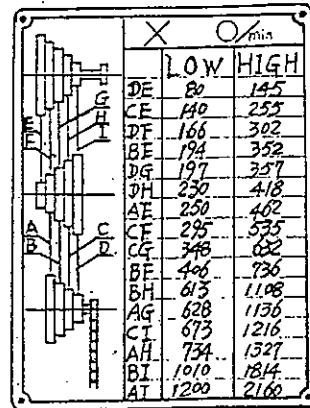 X O/min
LOW HIGH
DE 80 145
CE 140 255
DF 166 302
BE 194 352
DG 197 357
DH 230 418
AE 250 462
CF 295 535
CG 348 632
BF 406 736
BH 613 1108
AG 628 1136
CI 673 1216
AH 734 1327
BI 1010 1814
AI 1200 2160
G
E H
F I
A C
B D